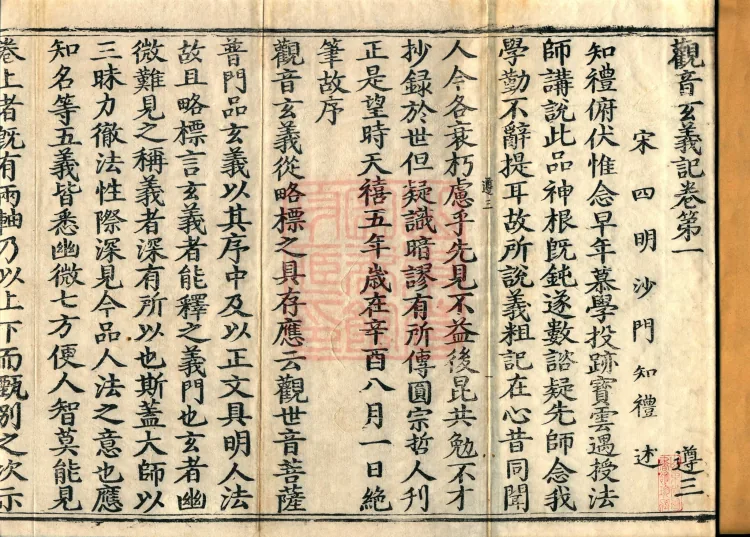 觀音玄義記卷第一 遵三
宋四明沙門知禮述
知禮俯伏惟念早年慕學投跡寶雲遇授法
師講說此品神根既鈍遂數諮疑先師念我
學勤不辭提耳故所說義粗記在心昔同聞
遵三
人今各衰朽慮乎先見不益後昆共勉不才
抄錄於世但疑識暗謬有所傳圓宗哲人刊
正是望時天禧五年歲在辛酉八月一日絶
筆故序
觀音玄義從略標之具存應云觀世音菩薩
普門品玄義以其序中及以正文具明人法
故且略標言玄義者能釋之義門也玄者幽
微難見之稱義者深有所以也斯蓋大師以
三昧力徹法性際深見今品人法之意也應
知名等五義皆悉幽微七方便人智莫能見
卷上者既有兩軸乃以上下而甄別之次示